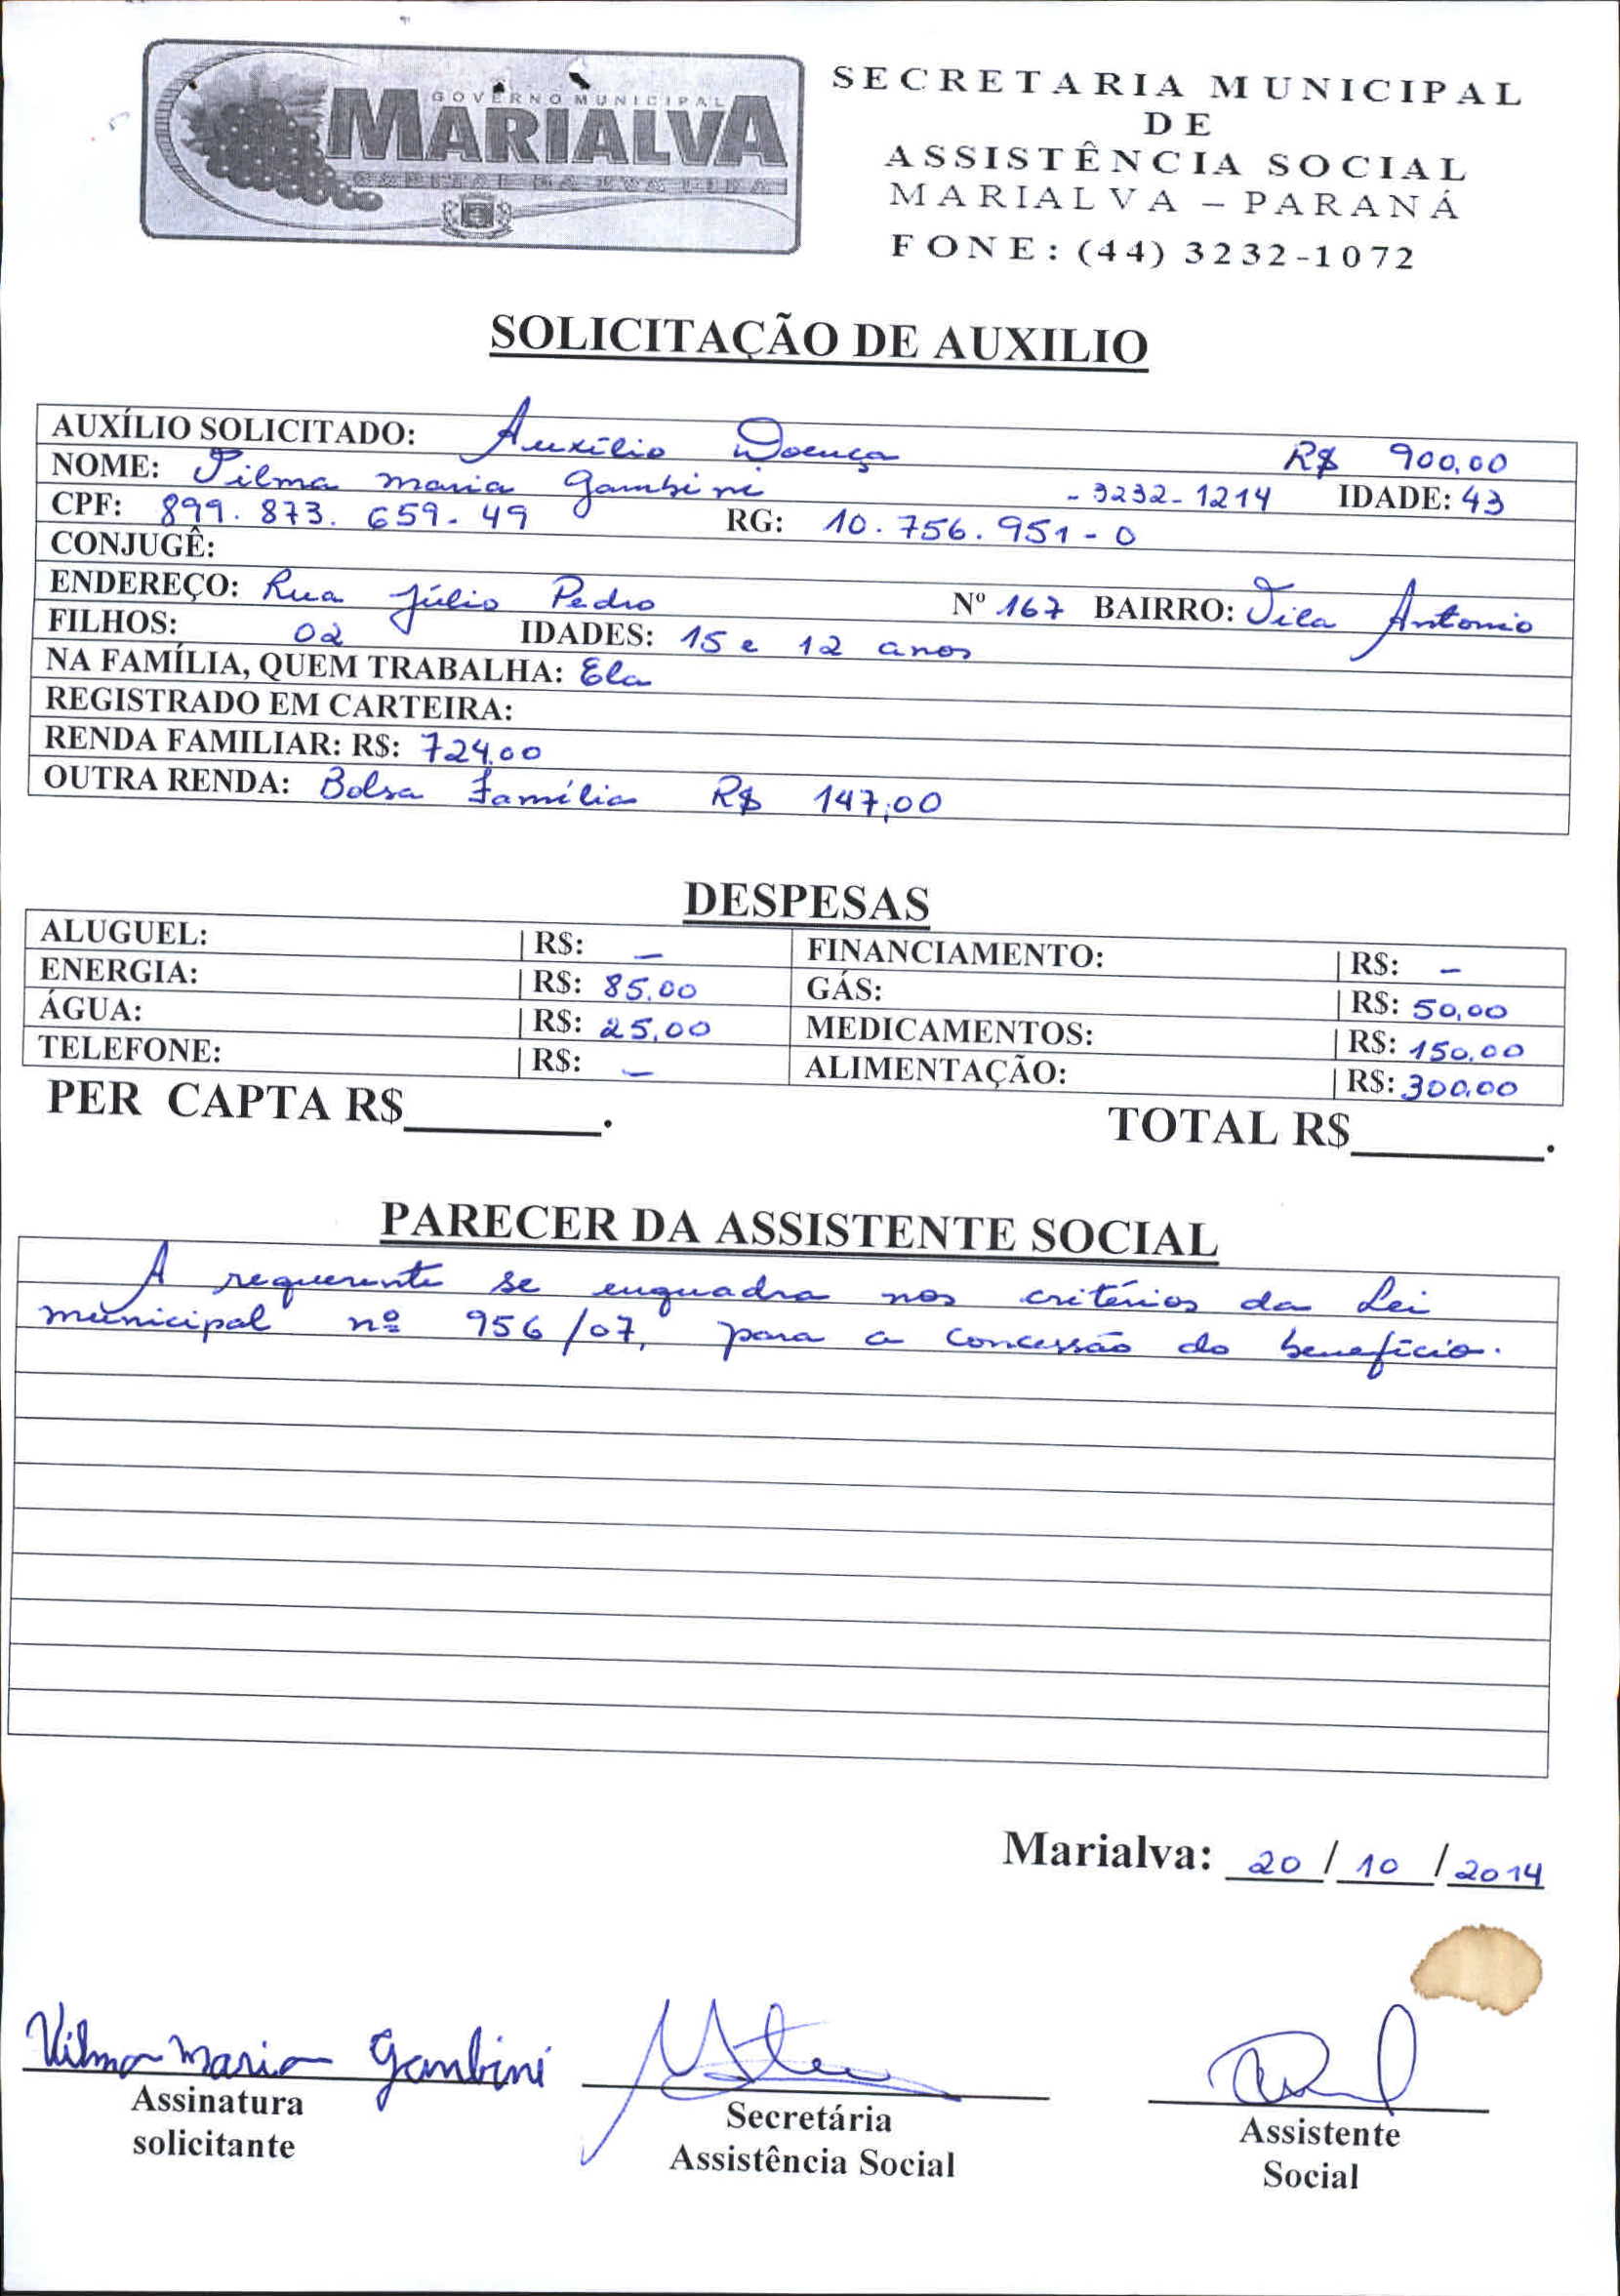 GOVERNO MUNICIPAL
MARIALVA
CAPITAL DA UVA FINA
SECRETARIA MUNICIPAL
DE
ASSISTÊNCIA SOCIAL
MARIALVA – PARANÁ
FONE: (44) 3232-1072
SOLICITAÇÃO DE AUXILIO
AUXÍLIO SOLICITADO: Auxílio Doença R$ 900,00
NOME: Vilma Maria Gambini - 3232-1214 IDADE: 43
CPF: 899.873.659-49 RG: 10.756.951-0
CONJUGÊ:
ENDEREÇO: Rua Júlio Pedro Nº 167 BAIRRO: Vila Antonio
FILHOS: 02 IDADES: 15 e 12 anos
NA FAMÍLIA, QUEM TRABALHA: Ela
REGISTRADO EM CARTEIRA:
RENDA FAMILIAR: R$: 724,00
OUTRA RENDA: Bolsa Família R$ 147,00
DESPESAS
ALUGUEL: R$: – FINANCIAMENTO: R$: –
ENERGIA: R$: 85,00 GÁS: R$: 50,00
ÁGUA: R$: 25,00 MEDICAMENTOS: R$: 150,00
TELEFONE: R$: – ALIMENTAÇÃO: R$: 300,00
PER CAPTA R$________. TOTAL R$________.
PARECER DA ASSISTENTE SOCIAL
A requerente se enquadra nos critérios da Lei
municipal nº 956/07, para a concessão do benefício.
Marialva: 20/10/2014
Vilma Maria Gambini
Assinatura
solicitante
Secretária
Assistência Social
Assistente
Social